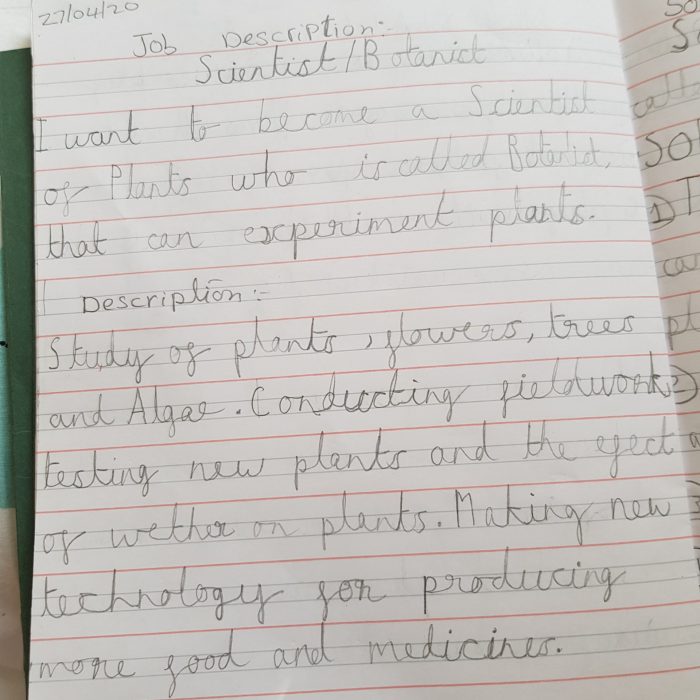 27/04/20
Job Description:-
Scientist/Botanist
I want to become a Scientist
of Plants who is called Botanist,
that can experiment plants.
Description:-
Study of plants, flowers, trees
and Algae. Conducting fieldwork
testing new plants and the efect
of wether on plants. Making new
technology for producing
more food and medicines.